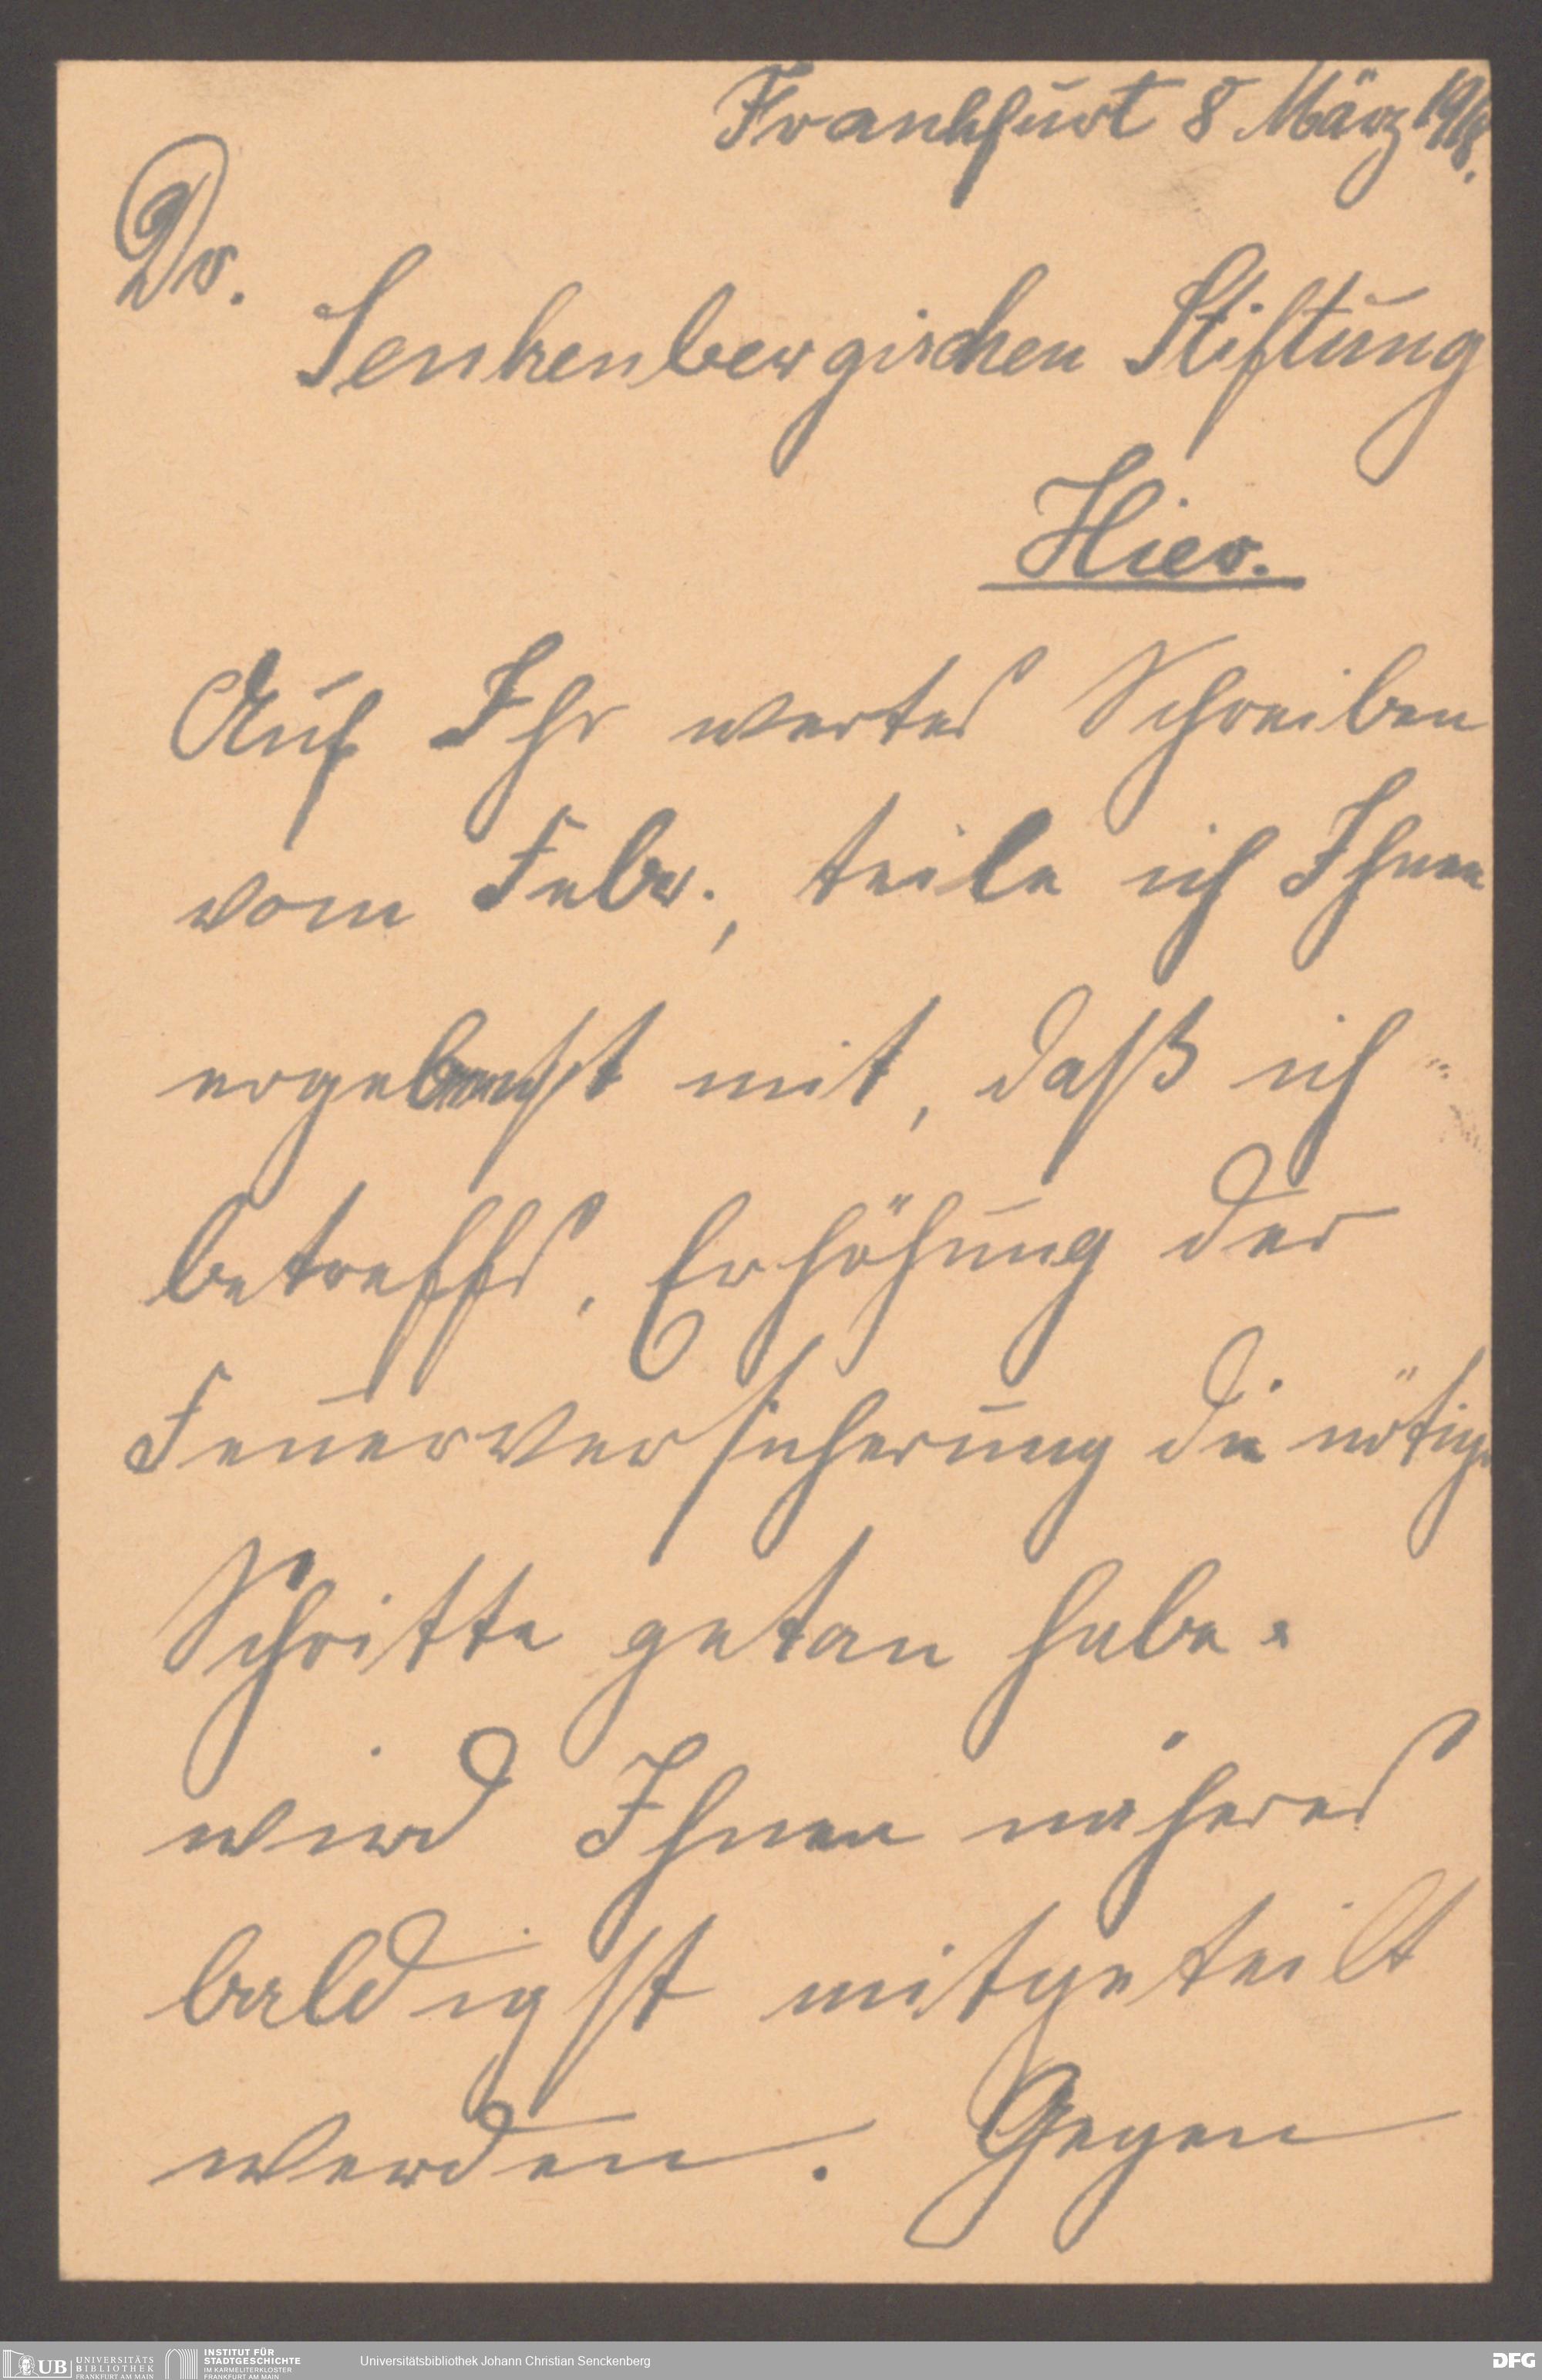 Frankfurt 8 März 1918.
Dr.
Senkenbergischen Stiftung
Hier.
Auf Ihr wertes Schreiben
vom Febr., teile ich Ihnen
ergebenst mit, daß ich
betreffs, Erhöhung der
Feuerversicherung die nötige
Schritte getan habe.
wird Ihnen näheres
baldigst mitgeteilt
werden. Gegen
UB UNIVERSITÄTS BIBLIOTHEK FRANKFURT AM MAIN
INSTITUT FÜR STADTGESCHICHTE IM KARMELITERKLOSTER FRANKFURT AM MAIN
Universitätsbibliothek Johann Christian Senckenberg
DFG